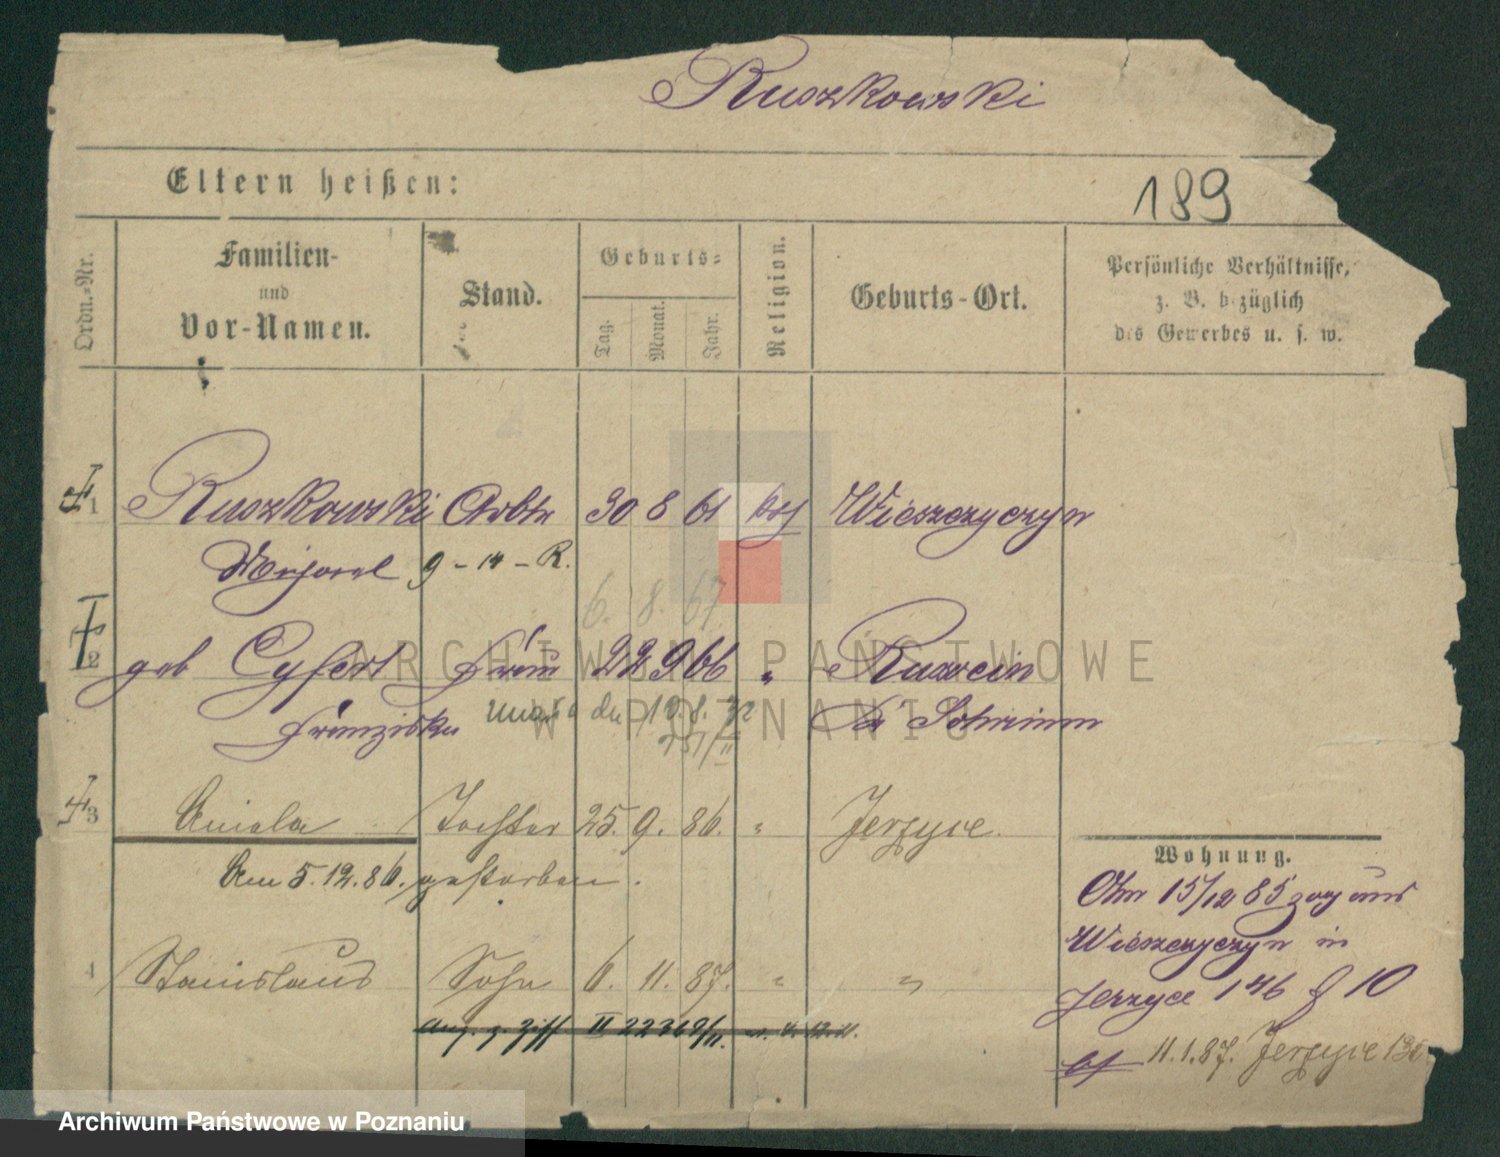 Ruszkowski
Eltern heißen:
189
Ordn.-Nr.
Familien-
und
Vor-Namen.
Stand.
Geburts-
Tag.
Monat.
Jahr.
Religion.
Geburts-Ort.
Persönliche Verhältnisse,
z. B. bezüglich
des Gewerbes u. s. w.
1 Ruszkowski Arbtr 30 8 61 Wieszczyczyn
9 - 14 - R.
6. 8. 67
2 geb Cyfert Frau 22 9 66 " Rusocin
Franziska Kr Schrimm
3 Aniela Tochter 25. 9. 86. " Jerzyce.
Am 5.12.86. gestorben.
4 Stanislaus Sohn 6. 11. 87. " "
Ang. z. Ziff II 22369/11.
Wohnung.
Am 15/12 85 zog aus
Wieszczyczyn in
Jerzyce 146 10
11.1.87. Jerzyce
ARCHIWUM PAŃSTWOWE
W POZNANIU
Archiwum Państwowe w Poznaniu